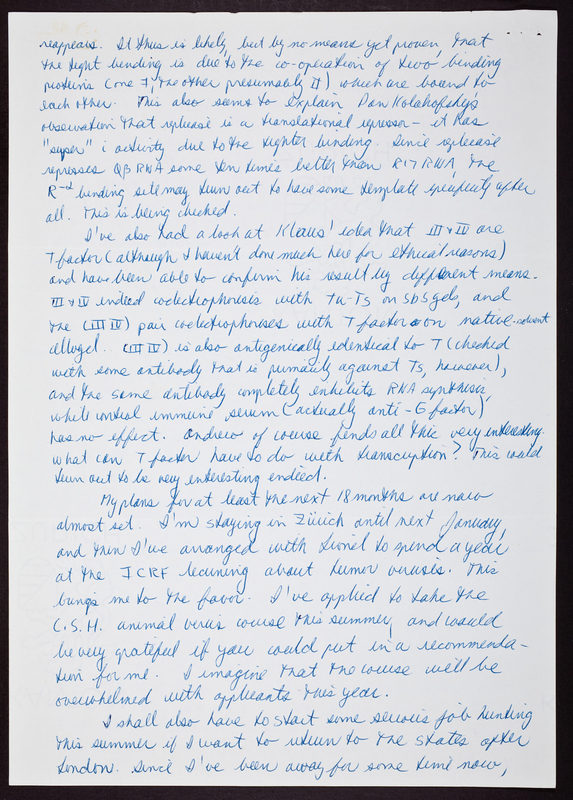 reappears. It thus is likely, but by no means yet proven, that
the tight binding is due to the co-operation of two binding
proteins (one I, the other presumably II) which are bound to
each other. This also seems to explain Dan Kolakofsky's
observation that replicase is a translational repressor - it has
"super" i activity due to the tighter binding. Since replicase
represses QB RNA some ten times better than R17 RNA, the
binding site may turn out to have some template specificity after
all. This is being checked.
I've also had a look at Klaus' idea that III + IV are
T factor (although I haven't done much here for ethical reasons)
and have been able to confirm his result by different means.
III + IV indeed coelectrophoresis with Tu-Ts on SDS gels, and
the (III IV) pair coelectrophoreses with T factor on native-solvent
(III IV) is also antigenically identical to T (checked
with some antibody that is primarily against Ts, however),
and the same antibody completely inhibits RNA synthesis,
while control immune serum (actually anti-G factor)
has no effect. Andrew of course finds all this very interesting.
What can T factor have to do with transcription? This could
turn out to be very interesting indeed.
My plans for at least the next 18 months are now
almost set. I'm staying in Zürich until next January,
and then I've arranged with Lionel to spend a year
at the ICRF learning about tumor viruses. This
brings me to the favor. I've applied to take the
C.S.H. animal virus course this summer, and would
be very grateful if you could put in a recommenda-
tion for me. I imagine that the course will be
overwhelmed with applicants this year.
I shall also have to start some serious job hunting
this summer if I want to return to the States after
London. Since I've been away for some time now,